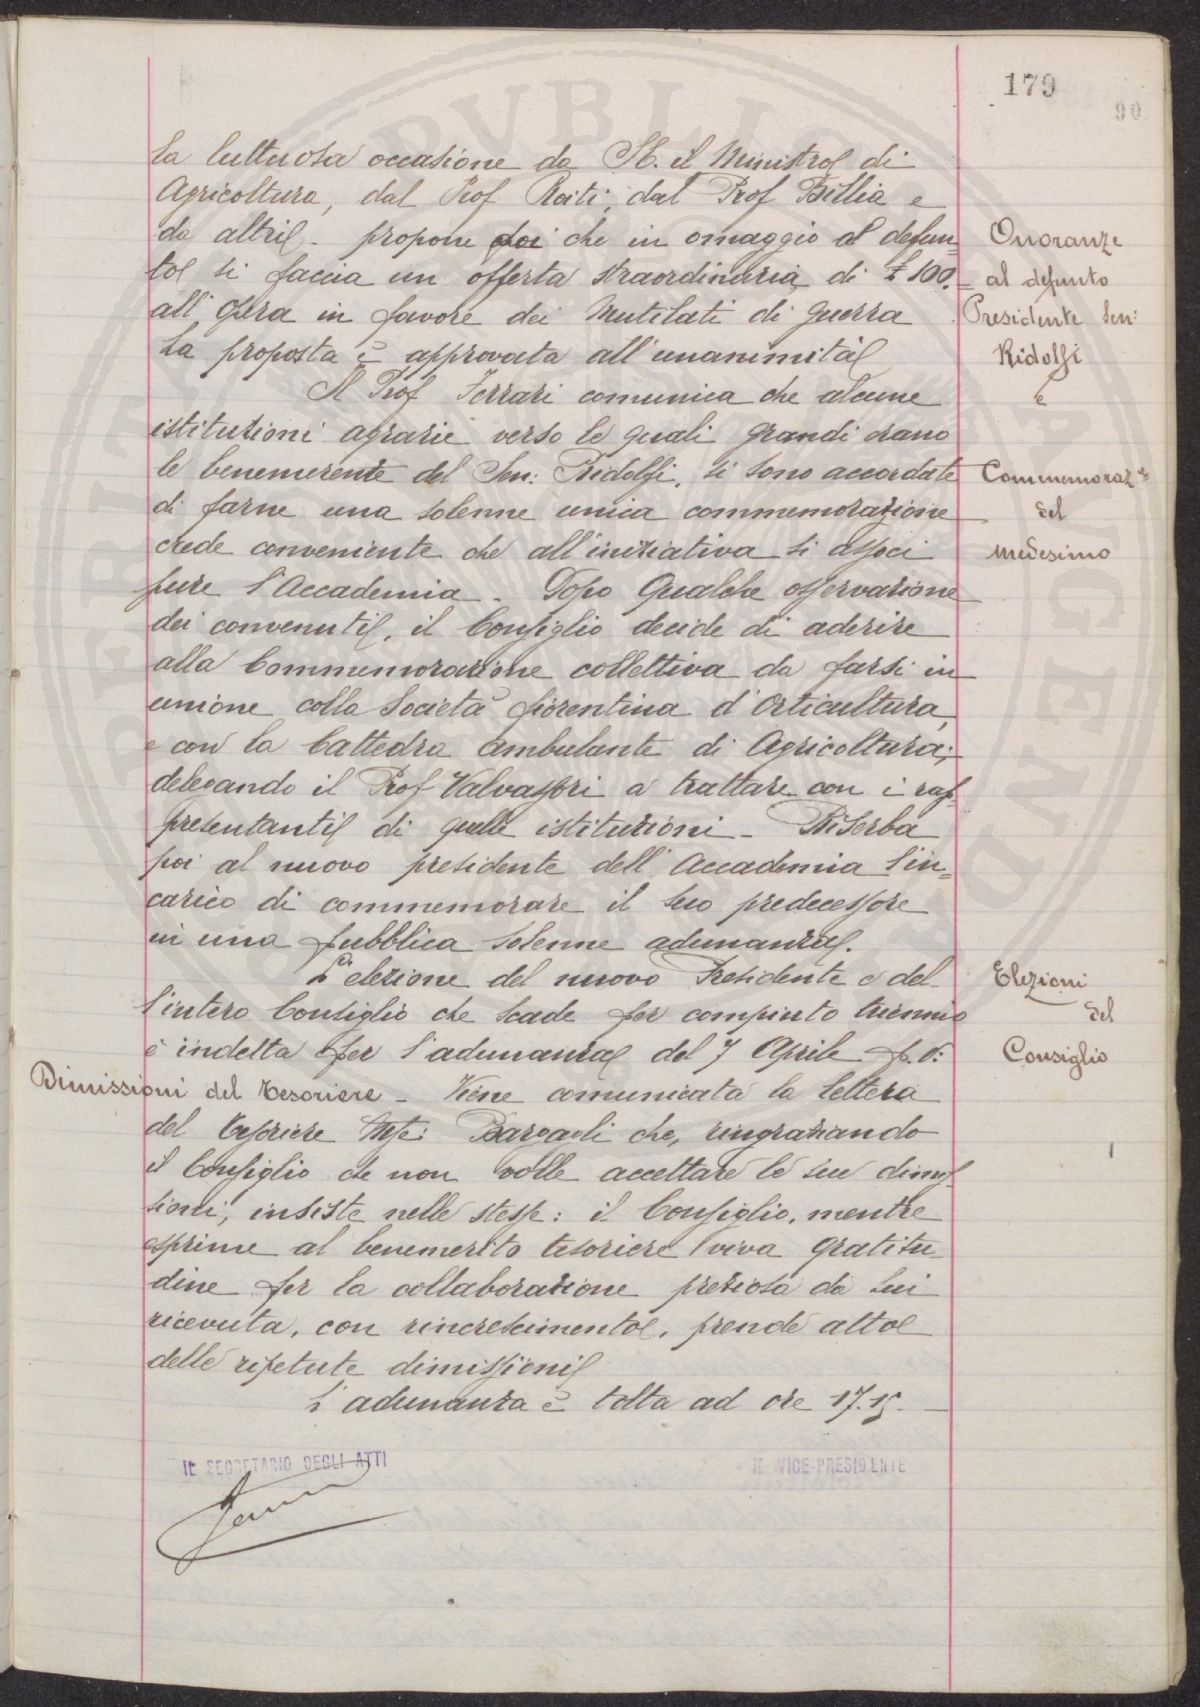 179
90
la luttuosa occasione da S.E. il Ministro di
Agricoltura, dal Prof Roiti, dal Prof Billia e
da altri. propone poi che in omaggio al defun-
to si faccia un offerta straordinaria di £ 100.
all'Opera in favore dei Mutilati di guerra
La proposta è approvata all'unanimità
Onoranze
al defunto
Presidente Sen:
Ridolfi
e
Il Prof Ferrari comunica che alcune
istituzioni agrarie verso le quali grandi erano
le benemerente del Sen: Ridolfi, si sono accordate
di farne una solenne unica commemorazione
crede conveniente che all'iniziativa si associ
pure l'Accademia. Dopo qualche osservazione
dei convenuti, il Consiglio decide di aderire
alla Commemorazione collettiva da farsi in
unione colla Società fiorentina d'Orticultura,
e con la Cattedra ambulante di Agricoltura;
delegando il Prof Valvassori a trattare con i rap-
presentanti di quelle istituzioni - Riserba
poi al nuovo presidente dell'Accademia l'in-
carico di commemorare il suo predecessore
in una pubblica solenne adunanza.
Commemoraz.ne
del
medesimo
L'elezione del nuovo Presidente e del-
l'intero Consiglio che scade per compiuto triennio
è indetta per l'adunanza del 7 Aprile p.v:
Elezioni
del
Consiglio
Dimissioni del Tesoriere - Viene comunicata la lettera
del Tesoriere Mse: Bargagli che, ringraziando
il Consiglio che non volle accettare le sue dimis-
sioni, insiste nelle stesse: il Consiglio, mentre
esprime al benemerito tesoriere viva gratitu-
dine per la collaborazione preziosa da lui
ricevuta, con rincrescimento, prende atto
delle ripetute dimissioni
L'adunanza è tolta ad ore 17.15.
IL SEGRETARIO DEGLI ATTI
IL VICE-PRESIDENTE